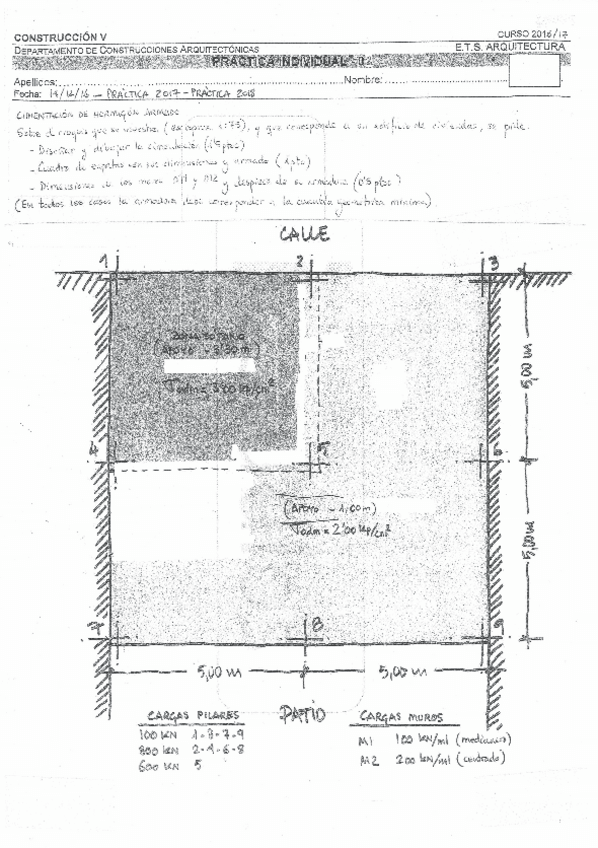 CONSTRUCCIÓN V
CURSO 2016/17
DEPARTAMENTO DE CONSTRUCCIONES ARQUITECTÓNICAS
E.T.S. ARQUITECTURA
PRÁCTICA INDIVIDUAL
Apellidos:
Nombre:
Fecha: 14/12/16 - PRÁCTICA 2017 - PRÁCTICA 2018
CIMENTACIÓN DE HORMIGÓN ARMADO
Sobre el croquis que se muestra (escala 1:75), y que corresponde a un edificio de viviendas, se pide:
- Diseñar y dibujar la cimentación
- Cuadro de zapatas con sus dimensiones y armado
- Dimensiones de los muros M1 y M2 y despiece de su armadura
(En todos los casos la armadura debe corresponder a la cuantía geométrica mínima).
CALLE
1 2 3
5,00 m
4 5 6
(APOYO - 1,00 m)
Tadm = 2'00 Kp/cm²
5,00 m
7 8 9
5,00 m 5,00 m
PATIO
CARGAS PILARES
100 KN 1-3-7-9
800 KN 2-4-6-8
600 KN 5
CARGAS MUROS
M1 100 KN/ml (medianero)
M2 200 KN/ml (centrado)